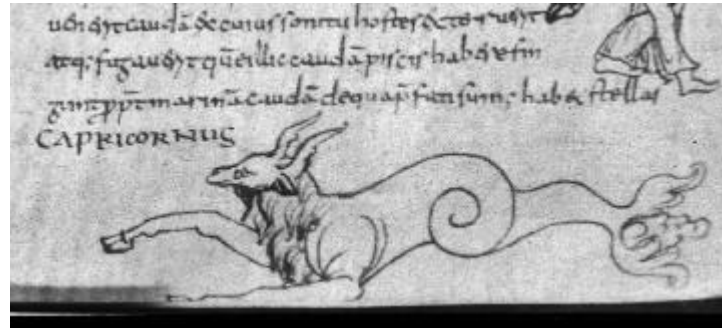 caudā & cuius sonitu hostes
atq; fugauerit illic caudā piscis hab& & fin
gunt marinā caudā de qua p̄fati sum; hab& stellas
CAPRICORNUS